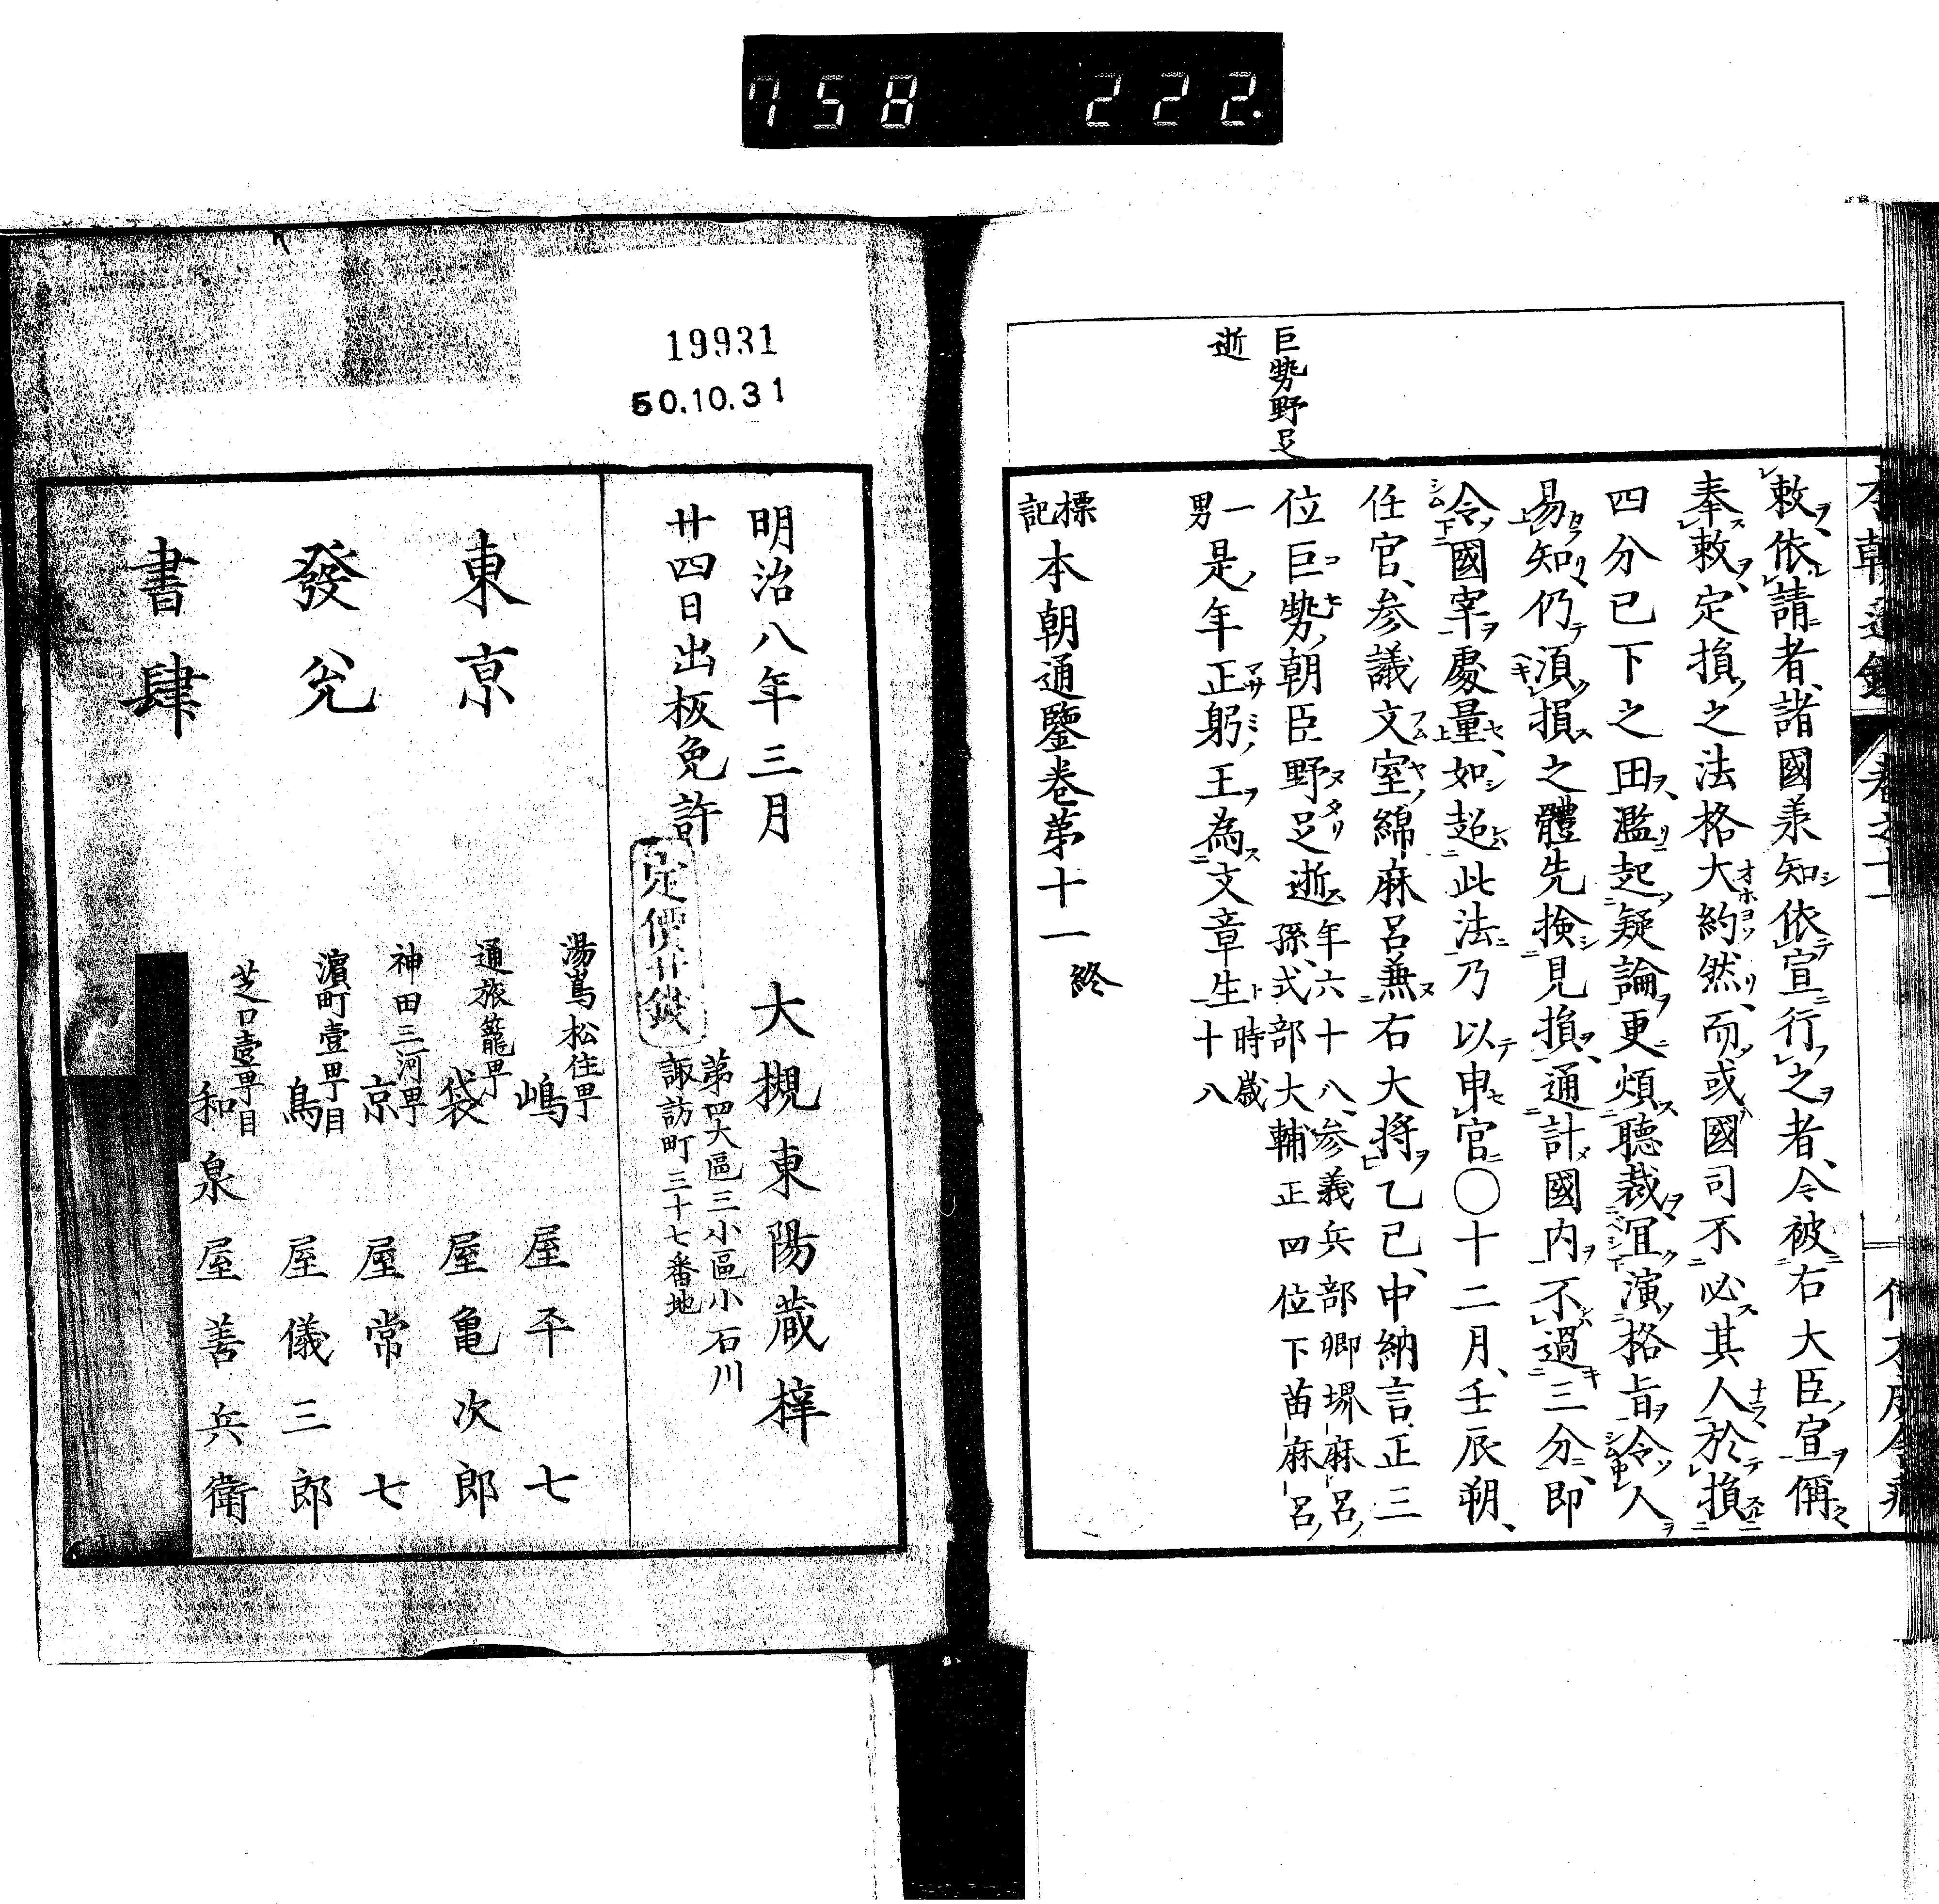 758 222.
巨勢野足
逝
敕依請者、諸國兼知依宣行之者、今被右大臣宣偁
奉敕、定損之法格大約然、而或國司不必其人於損
四分已下之田濫起疑論更煩聽裁、宜演格旨令人
易知仍須損之體先撿見損、通計國内不過三分、即
令國宰處量、如起此法乃以申官〇十二月、壬辰朔、
任官、参議文室綿麻呂兼右大将乙己、中納言正三
位巨勢朝臣野足逝年六十八、参義兵部卿堺麻呂
孫、式部大輔正四位下苗麻呂
一男是年正躬王為文章生時歳十八
標記本朝通鑒巻第十一終
19931
50.10.31
明治八年三月
廿四日出板免許
定價廿錢
大槻東陽蔵梓
第四大區三小區小石川
諏訪町三十七番地
東京
發兌
書肆
湯嶌松住町
嶋屋平七
通旅籠町
袋屋亀次郎
神田三河町
京屋常七
濵町壹町目
鳥屋儀三郎
芝口壹町目
和泉屋善兵衛